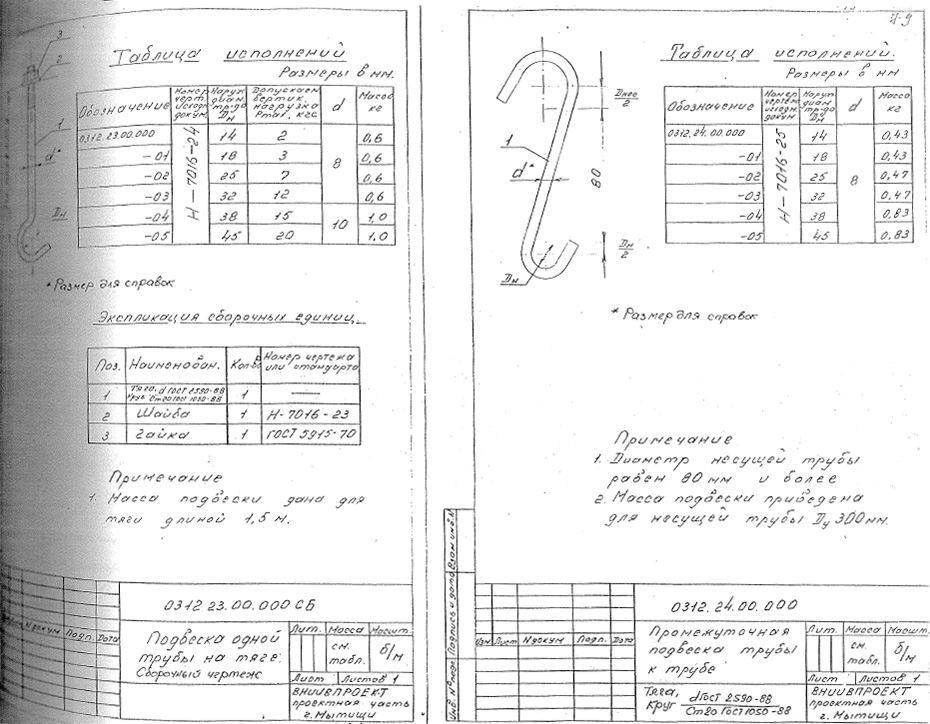 3
2
1
d*
Dн
Таблица исполнений
Размеры в мм.
Обозначение Номер черт. исходн. докум. Наруж. диам. тр-да Dн Допускаем. вертик. нагрузка Pmax, кгс d Масса кг
0312.23.00.000 Н-7016-24 14 2 8 0,6
-01 18 3 0,6
-02 25 7 0,6
-03 32 12 0,6
-04 38 15 10 1,0
-05 45 20 1,0
* Размер для справок
Экспликация сборочных единиц
Поз. Наименован. Кол-во Номер чертежа или стандарта
1 Тяга, d ГОСТ 2590-88 Круг Ст20 ГОСТ 1050-88 1 —
2 Шайба 1 Н-7016-23
3 Гайка 1 ГОСТ 5915-70
Примечание
1. Масса подвески дана для
тяги длиной 1,5 м.
0312 23.00.000 СБ
N докум Подп. Дата
Подвеска одной
трубы на тяге.
Сборочный чертеж
Лит. Масса Масшт.
см. табл. б/м
Лист Листов 1
ВНИИВПРОЕКТ
проектная часть
г. Мытищи
II-9
Dнес/2
1
d*
80
Dн/2
Dн
Таблица исполнений.
Размеры в мм
Обозначение Номер чертежа исходн. докум. Наруж. диам. тр-да Dн d Масса кг
0312.24.00.000 Н-7016-25 14 8 0,43
-01 18 0,43
-02 25 0,47
-03 32 0,47
-04 38 0,83
-05 45 0,83
* Размер для справок
Примечание
1. Диаметр несущей трубы
равен 80 мм и более
2. Масса подвески приведена
для несущей трубы Dу 300 мм.
Взам инв.N
Подпись и дата
Инв. N подл.
0312.24.00.000
Изм Лист N докум Подп. Дата
Промежуточная
подвеска трубы
к трубе
Лит. Масса Масшт.
см. табл. б/м
Лист Листов 1
Тяга,
Круг d ГОСТ 2590-88
Ст20 ГОСТ 1050-88
ВНИИВПРОЕКТ
проектная часть
г. Мытищи